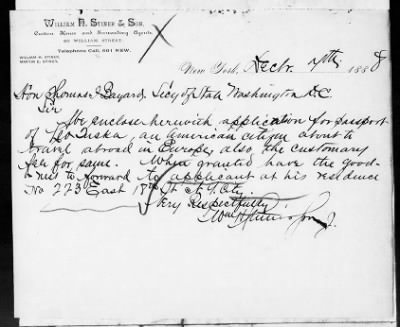 William H. Stiner & Son,
Custom House and Forwarding Agents,
WILLIAM STREET.
Telephone Call, 601 NEW.
WILLIAM H. STINER,
MARTIN E. STINER.
New York, Decbr. 7th 1888
Hon Thomas F Bayard, Secy of State Washington D.C.
Sir
We enclose herewith application for passport
of Leo Diska, an American citizen about to
travel abroad in Europe, also, the customary
fee for same. When granted have the good-
ness to forward to applicant at his residence
No 223 East 18th St N.Y. City.
Very Respectfully
Wm H Stiner & Son